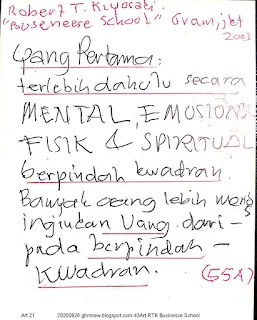 Robert T. Kiyosaki
"Buseneese School" Gramijet
2003
Yang Pertama:
terlebih dahulu secara
MENTAL, EMOSIONAL
FISIK & SPIRITUAL
berpindah kwadran.
Banyak orang lebih meng
inginkan Uang dari-
pada berpindah-
Kwadran.
(55A)
Art 21 20200926 ghmnew.blogspot.com-43Art RTK Businesse School